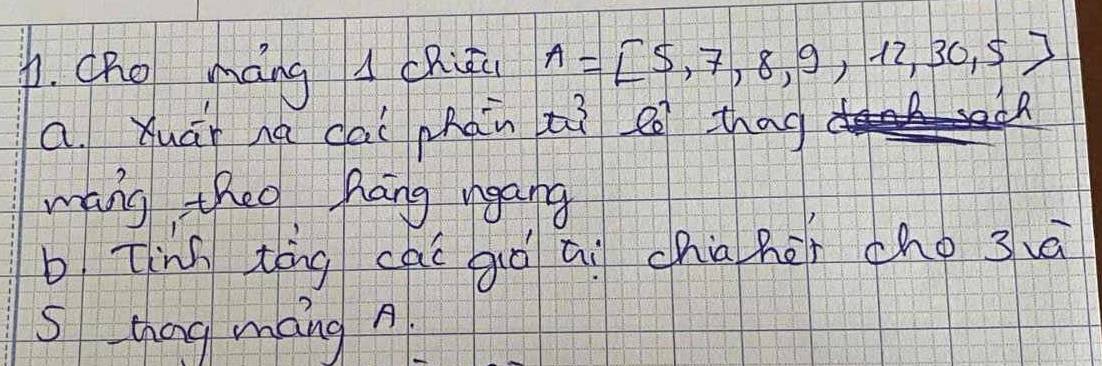 1. Cho mảng 1 chiều A = [5, 7, 8, 9, 12, 30, 5]
a. Xuất ra các phần tử lẻ trong
mảng theo hàng ngang
b. Tính tổng các giá trị chia hết cho 3 và
5 trong mảng A.